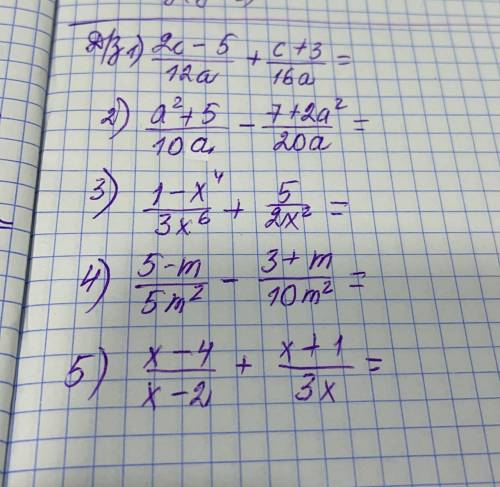 Д/з 1) (2c - 5)/(12a) + (c + 3)/(16a) =
2) (a² + 5)/(10a) - (7 + 2a²)/(20a) =
3) (1 - x⁴)/(3x⁶) + 5/(2x²) =
4) (5 - m)/(5m²) - (3 + m)/(10m²) =
5) (x - 4)/(x - 2) + (x + 1)/(3x) =